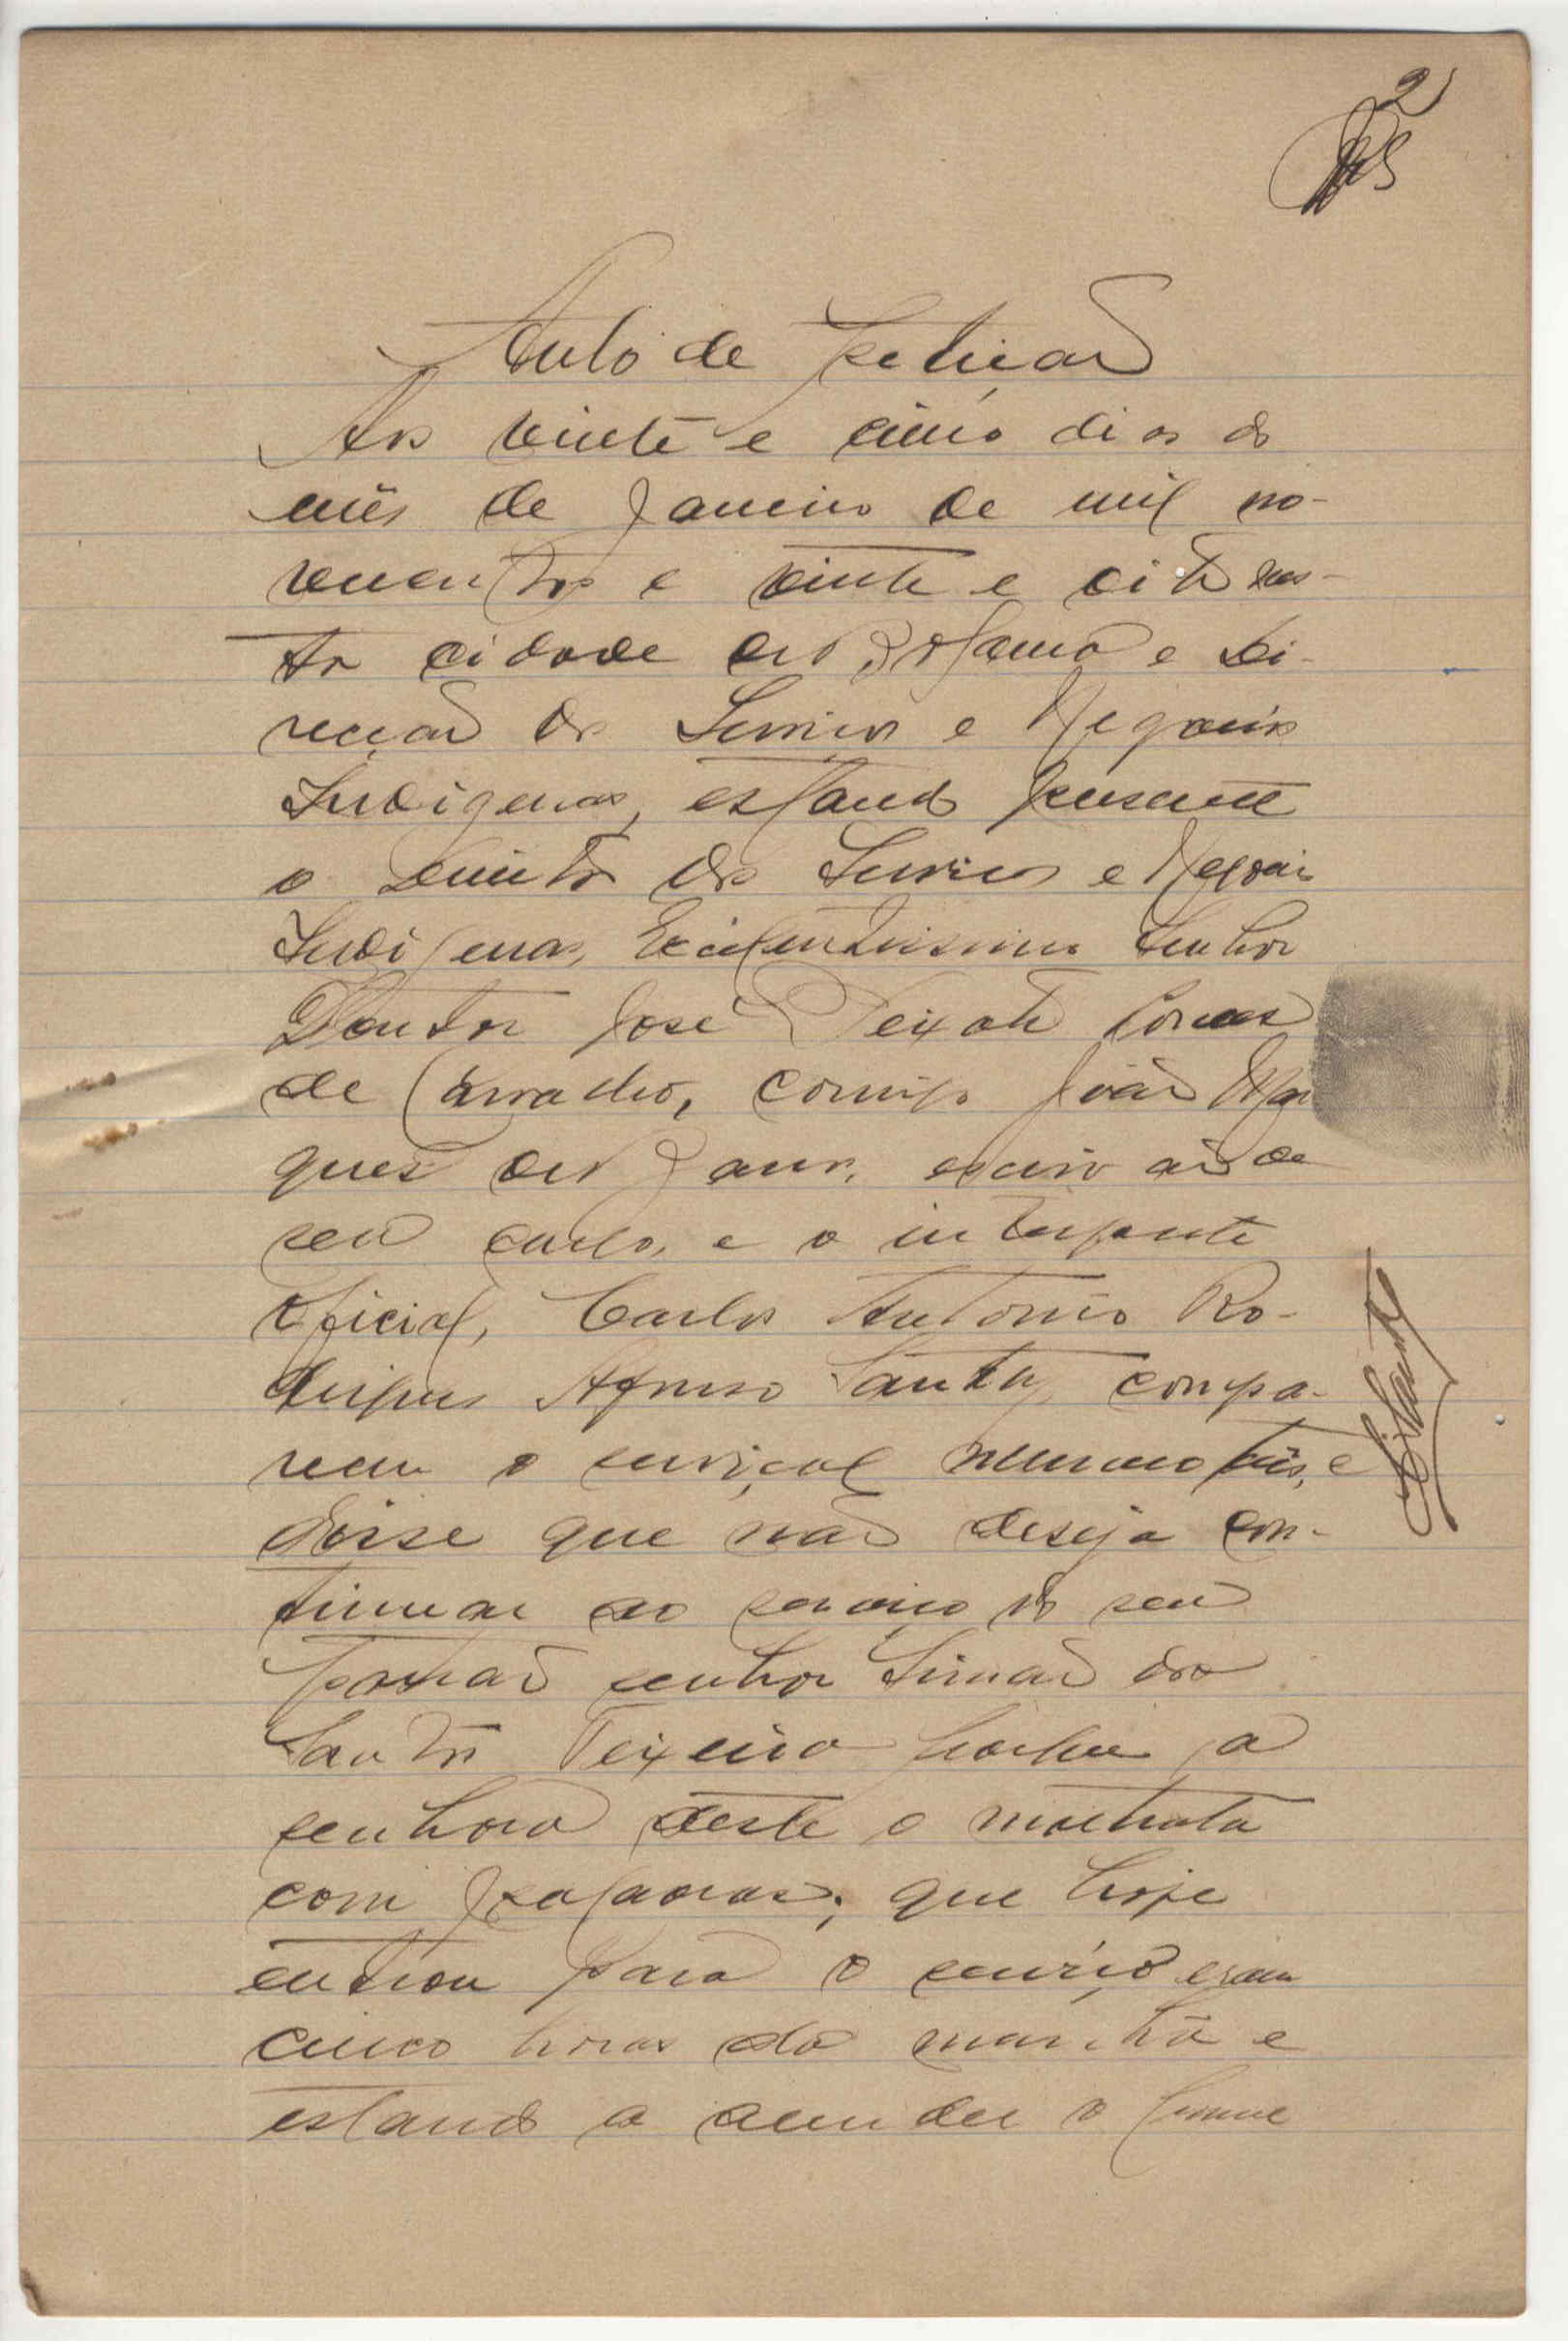 2
Auto de petição
Aos vinte e cinco dias do
mês de Janeiro de mil no-
vecentos e vinte e oito nes-
ta cidade de Bolama e Di-
recção dos Serviços e Negocios
Indigenas, estando presente
o Director dos Serviços e Negocios
Indigenas, Excelentissimo Senhor
Doutor José Peixoto Correia
de Carvalho, comigo João Mar
ques de Barros, escrivão de
seu cargo, e o interprete
oficial, Carlos Antonio Ro-
drigues Afonso Santy, compa-
receu o serviçal numero três, e
disse que não deseja con-
tinuar ao serviço do seu
patrão senhor Simão dos
Santos Teixeira porque a
senhora deste o maltrata
com palavras; que hoje
entrou para o serviço eram
cinco horas da manhã e
estando a acender o lume